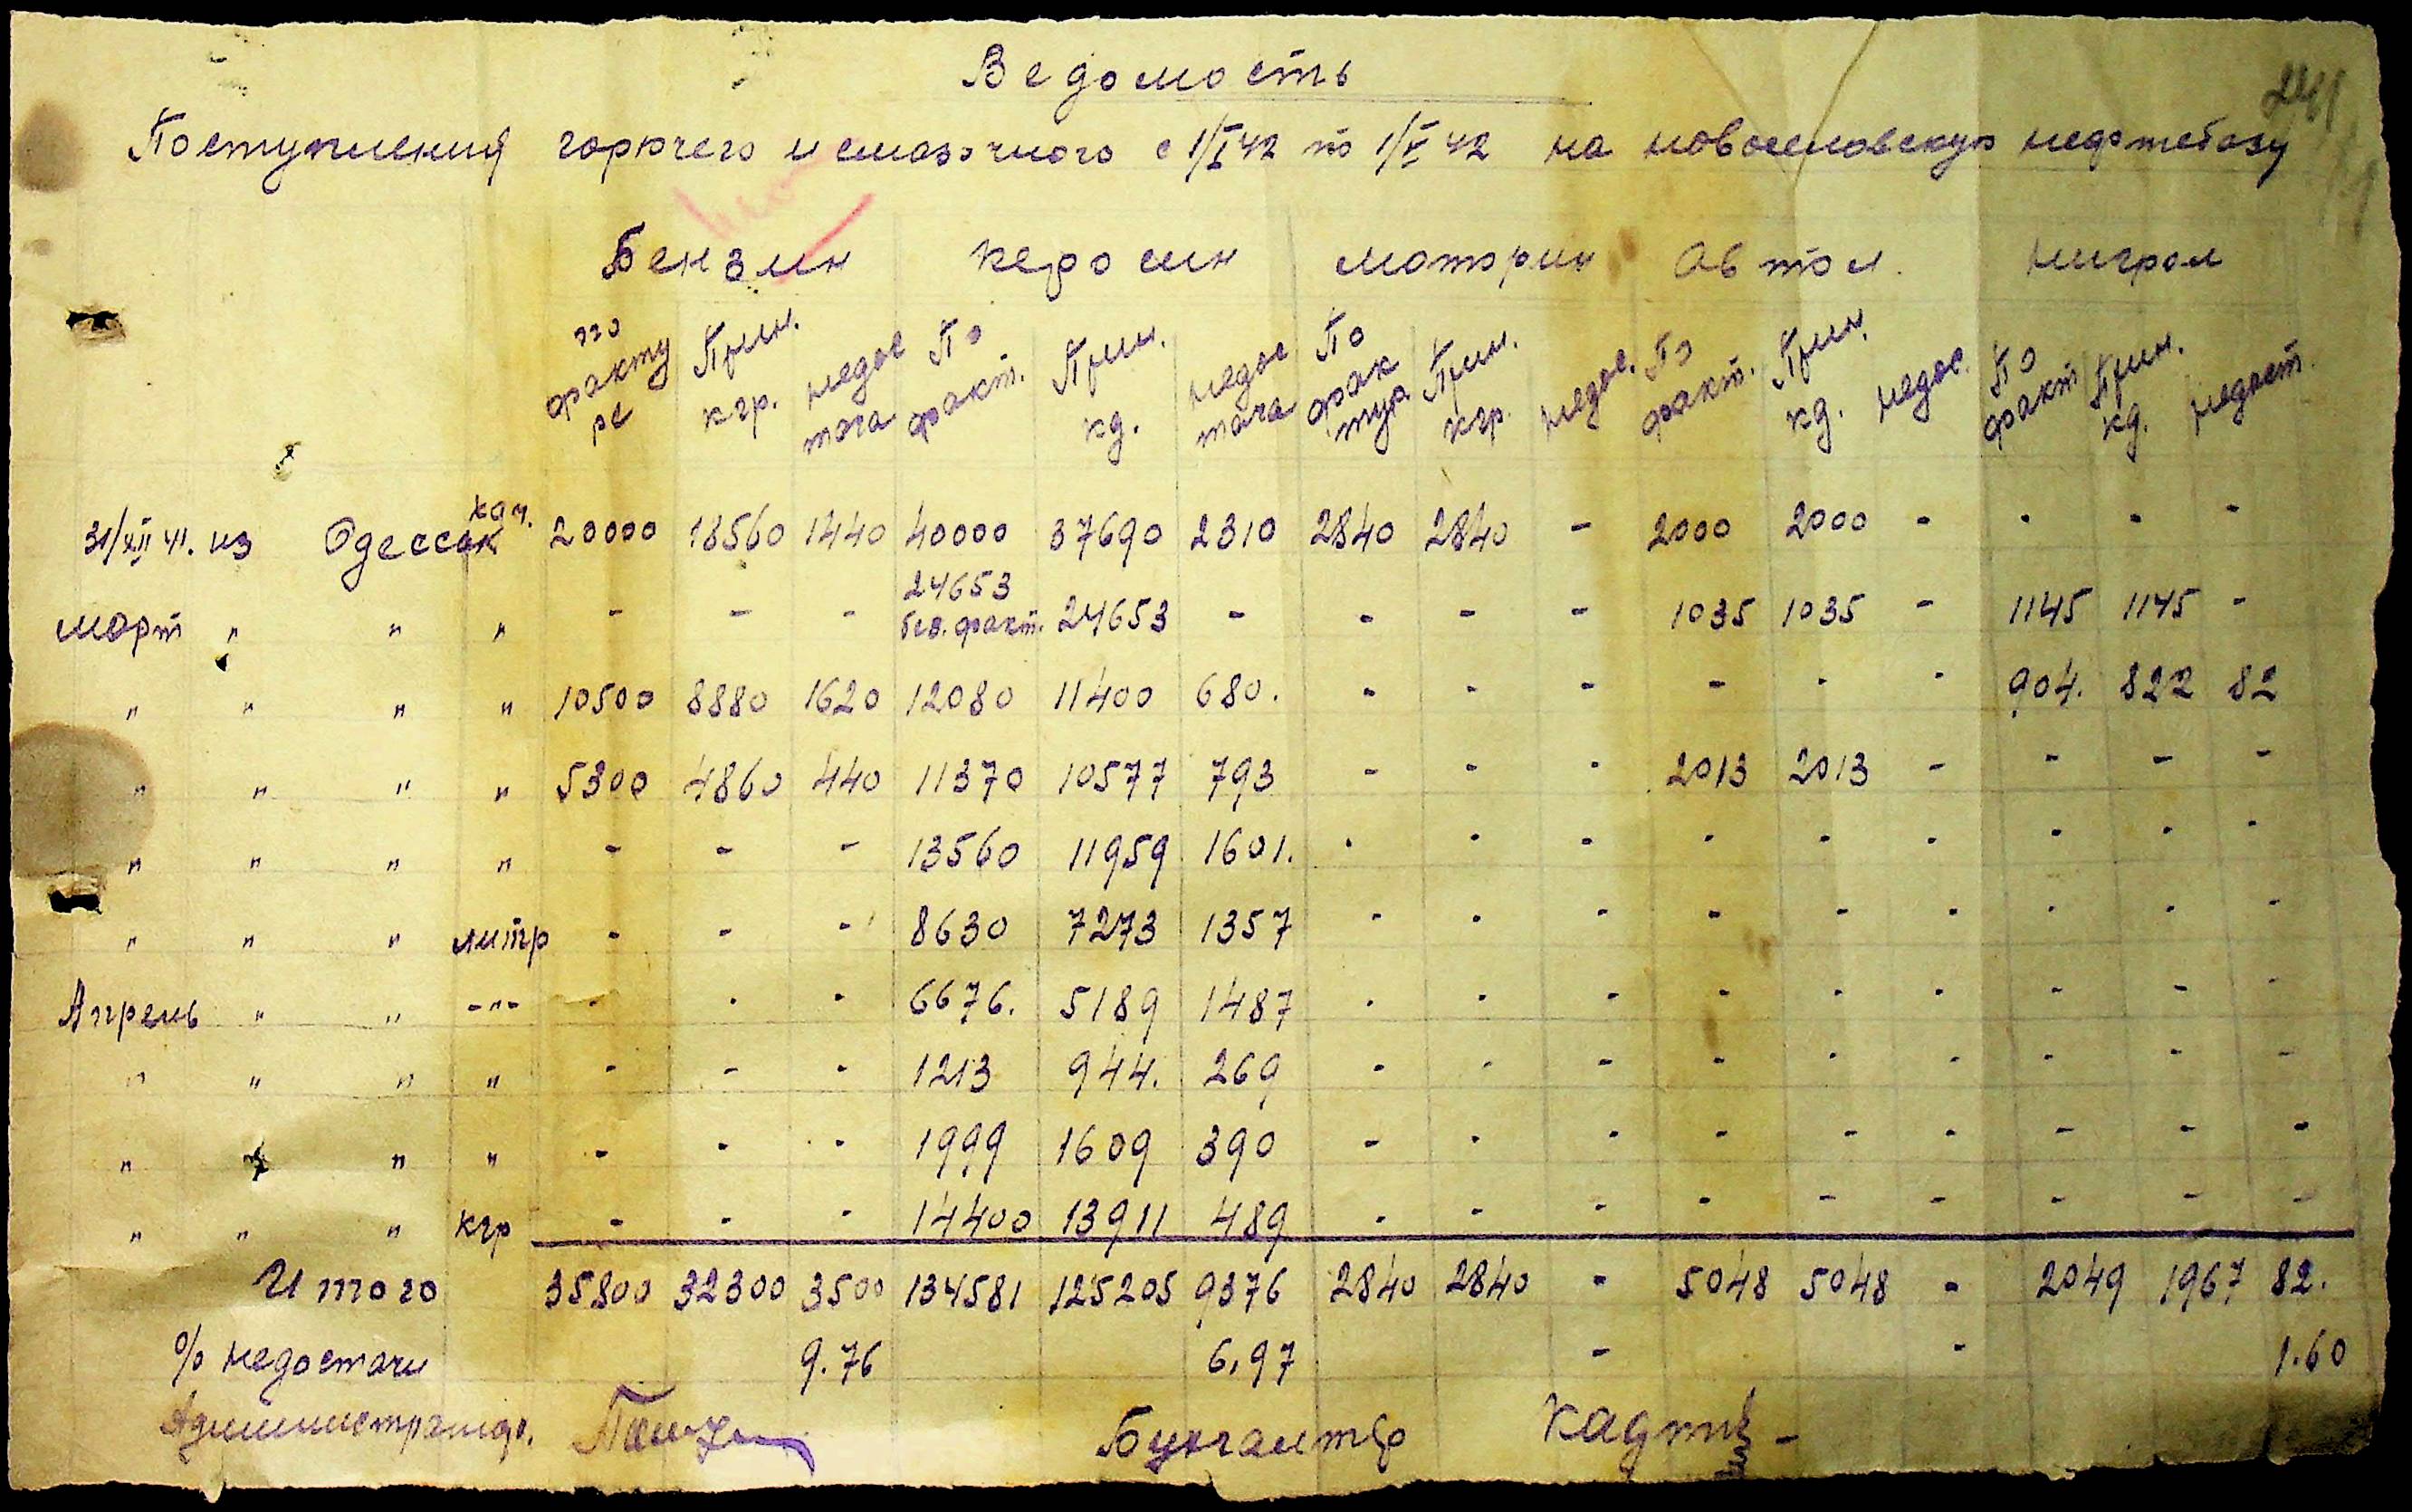 241
Ведомость
Поступления горючего и смазочного с 1/I 42 по 1/V 42 на новоселовскую нефтебазу
Бензин керосин моторин автол. нигрол
по фактуре Прин. кгр. недостача По факт. Прин. кд. недостача По фактур. Прин. кгр. недос. По факт. Прин. кд. недос. По факт Прин. кд. недост.
31/XII 41. из Одессы кан. 20000 18560 1440 40000 37690 2310 2840 2840 - 2000 2000 - - - -
март " " " - - - 24653 без. факт. 24653 - - - - 1035 1035 - 1145 1145 -
" " " " 10500 8880 1620 12080 11400 680. - - - - - - 904. 822 82
" " " " 5300 4860 440 11370 10577 793 - - - 2013 2013 - - - -
" " " " - - - 13560 11959 1601. - - - - - - - - -
" " " литр - - - 8630 7273 1357 - - - - - - - - -
Апрель " " -"- - - - 6676. 5189 1487 - - - - - - - - -
" " " " - - - 1213 944. 269 - - - - - - - - -
" " " " - - - 1999 1609 390 - - - - - - - - -
" " " кгр - - - 14400 13911 489 - - - - - - - - -
Итого 35800 32300 3500 134581 125205 9376 2840 2840 - 5048 5048 - 2049 1967 82.
% недостачи 9.76 6,97 - - 1.60
Бухгалтер